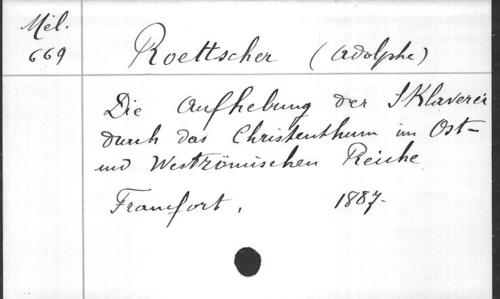 Mél.
669
Roettscher (Adolphe)
Die Aufhebung der Sklaverei
durch das Christenthum im Ost-
und Weströmischen Reiche
Francfort, 1887.